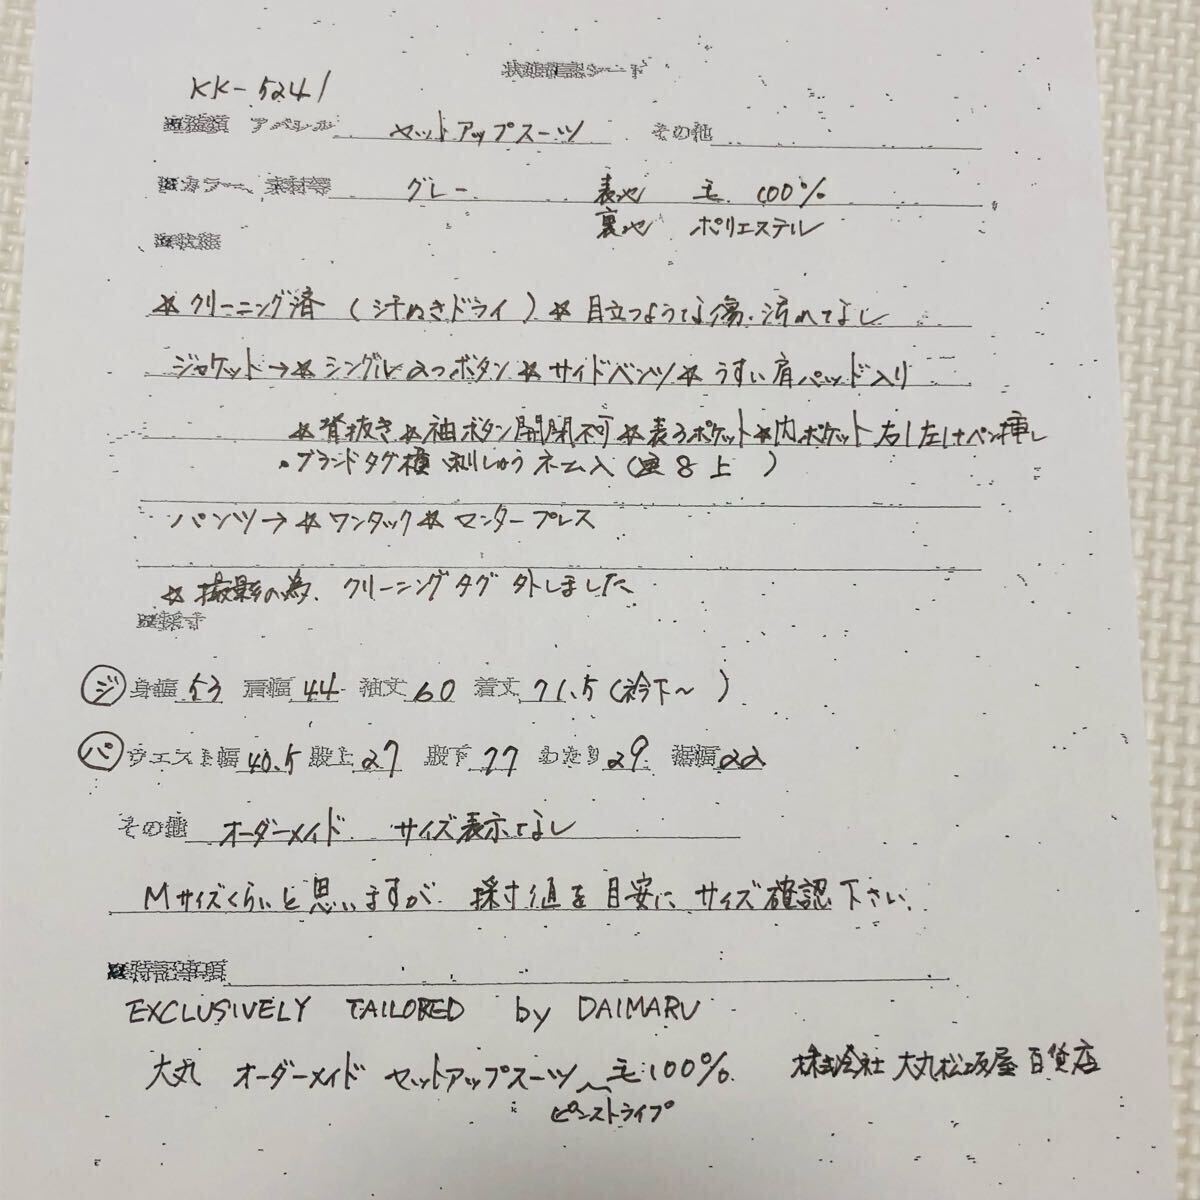 状態確認シート
KK-5241
■種類 アパレル セットアップスーツ その他
■カラー、素材等 グレー 表地 毛 100%
裏地 ポリエステル
■状態
☆クリーニング済 (汗ぬきドライ) ☆目立つような傷・汚れなし
ジャケット→☆シングル2つボタン☆サイドベンツ☆うすい肩パッド入り
☆背抜き☆袖ボタン開閉不可☆表3ポケット☆内ポケット右1左1+ペン挿し
・ブランドタグ横 刺しゅうネーム入( 上 )
パンツ→☆ワンタック☆センタープレス
☆撮影の為、クリーニングタグ外しました
■採寸
ジ 身幅 53 肩幅 44 袖丈 60 着丈 71.5(衿下～ )
パ ウエスト幅 40.5 股上 27 股下 77 わたり 29 裾幅 22
その他 オーダーメイド サイズ表示なし
Mサイズくらいと思いますが、採寸値を目安にサイズ確認下さい。
■特記事項
EXCLUSIVELY TAILORED by DAIMARU
大丸 オーダーメイド セットアップスーツ 毛100% 株式会社 大丸松坂屋百貨店
ピンストライプ